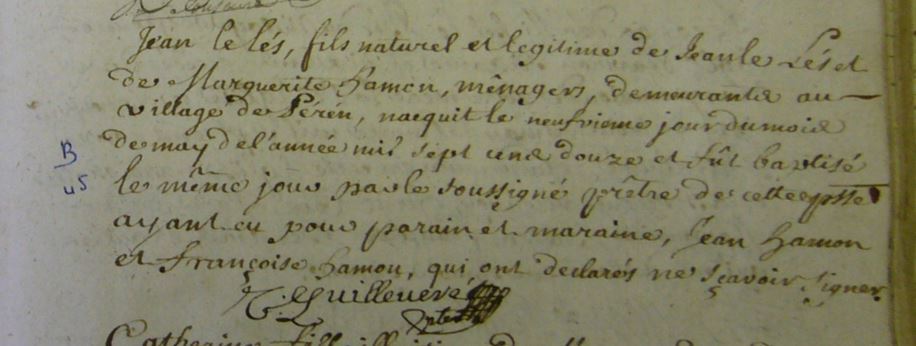 Jean le lés, fils naturel et legitime de Jean le Lés et
de Marguerite hamon, mênagers, demeurants au
village de Pérén, nacquit le neufvieme jour du mois
de may de l'année mil sept cens douze et fût baptisé
B
us
le même jour par le soussigné prêtre de cette psse
ayant eu pour parain et maraine, Jean hamon
et françoise hamon, qui ont declarés ne sçavoir signer
Guilleveré
ptre
Catherine fille